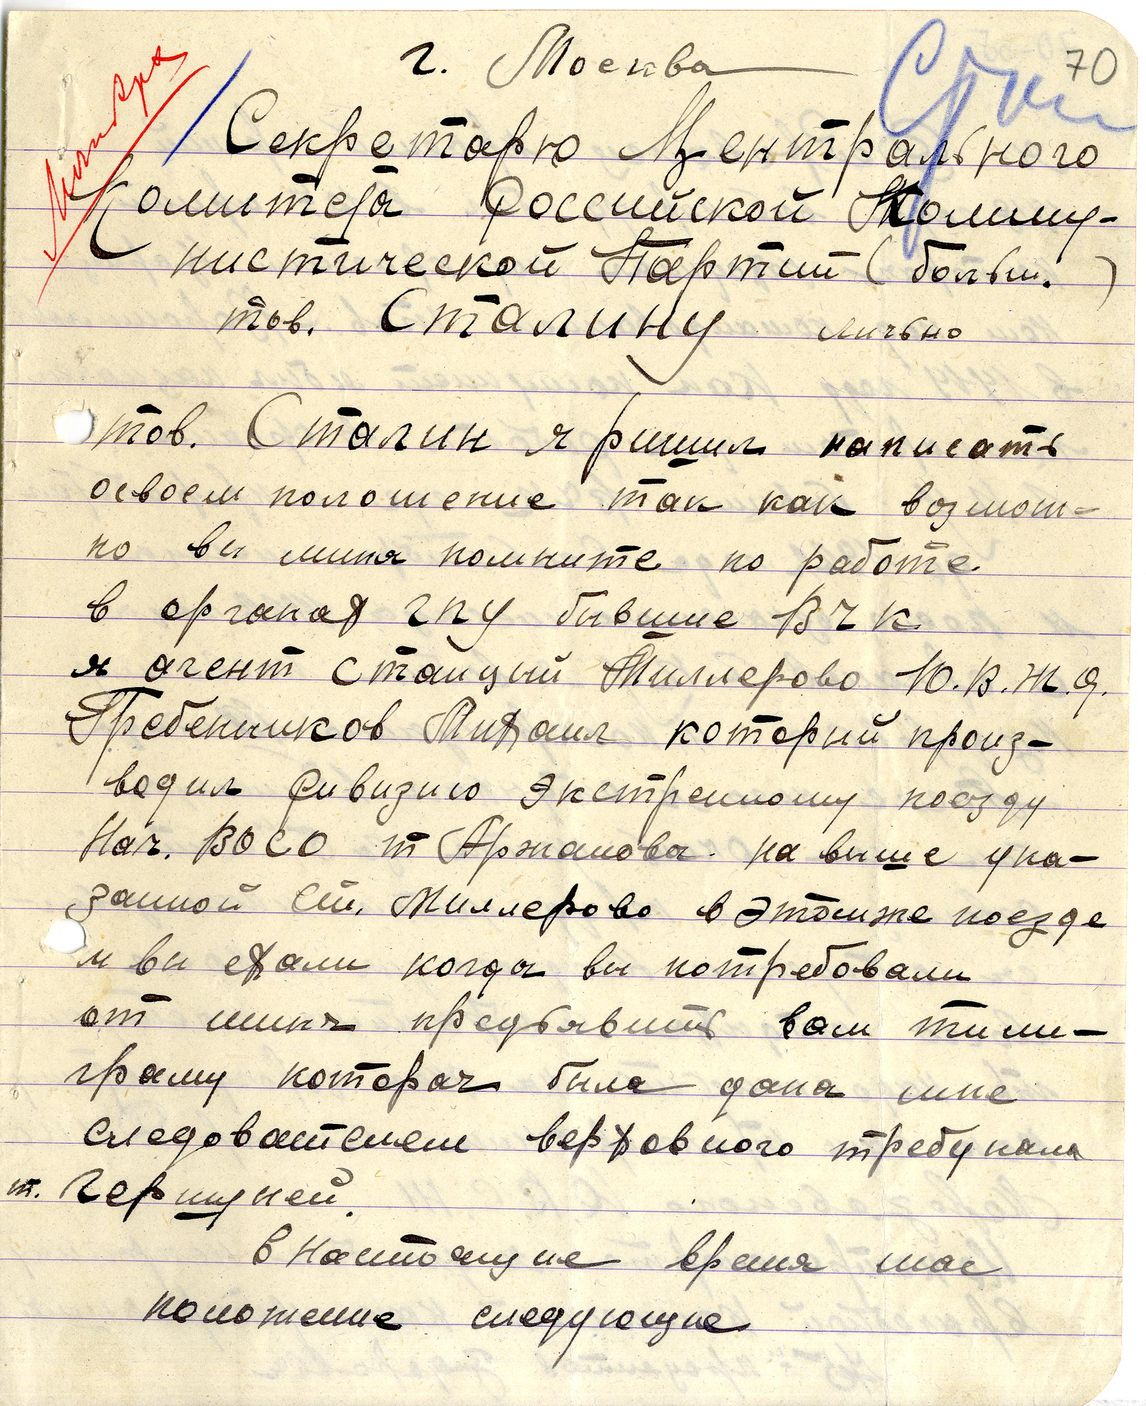 70
г. Москва
Секретарю Центрального
Комитета Российской Комму-
нистической Партии (больш.)
тов. Сталину лично
тов. Сталин я ришил написать
освоем положение так как возмож-
но вы миня помните по работе
в органах ГПУ бывшие ВЧК
я агент станции Миллерово Ю.В.Ж.Д.
Гребенников Михаил который произ-
водил ривизию экстренному поезду
Нач. ВОСО т Аржанова на выше ука-
занной ст. Миллерово в этомже поезде
и вы ехали когда вы потребовали
от миня предъявить вам тили-
граму которая была дана мне
следователем верховного требунала
т. Гершуней.
в настоящие время мое
положение следующие